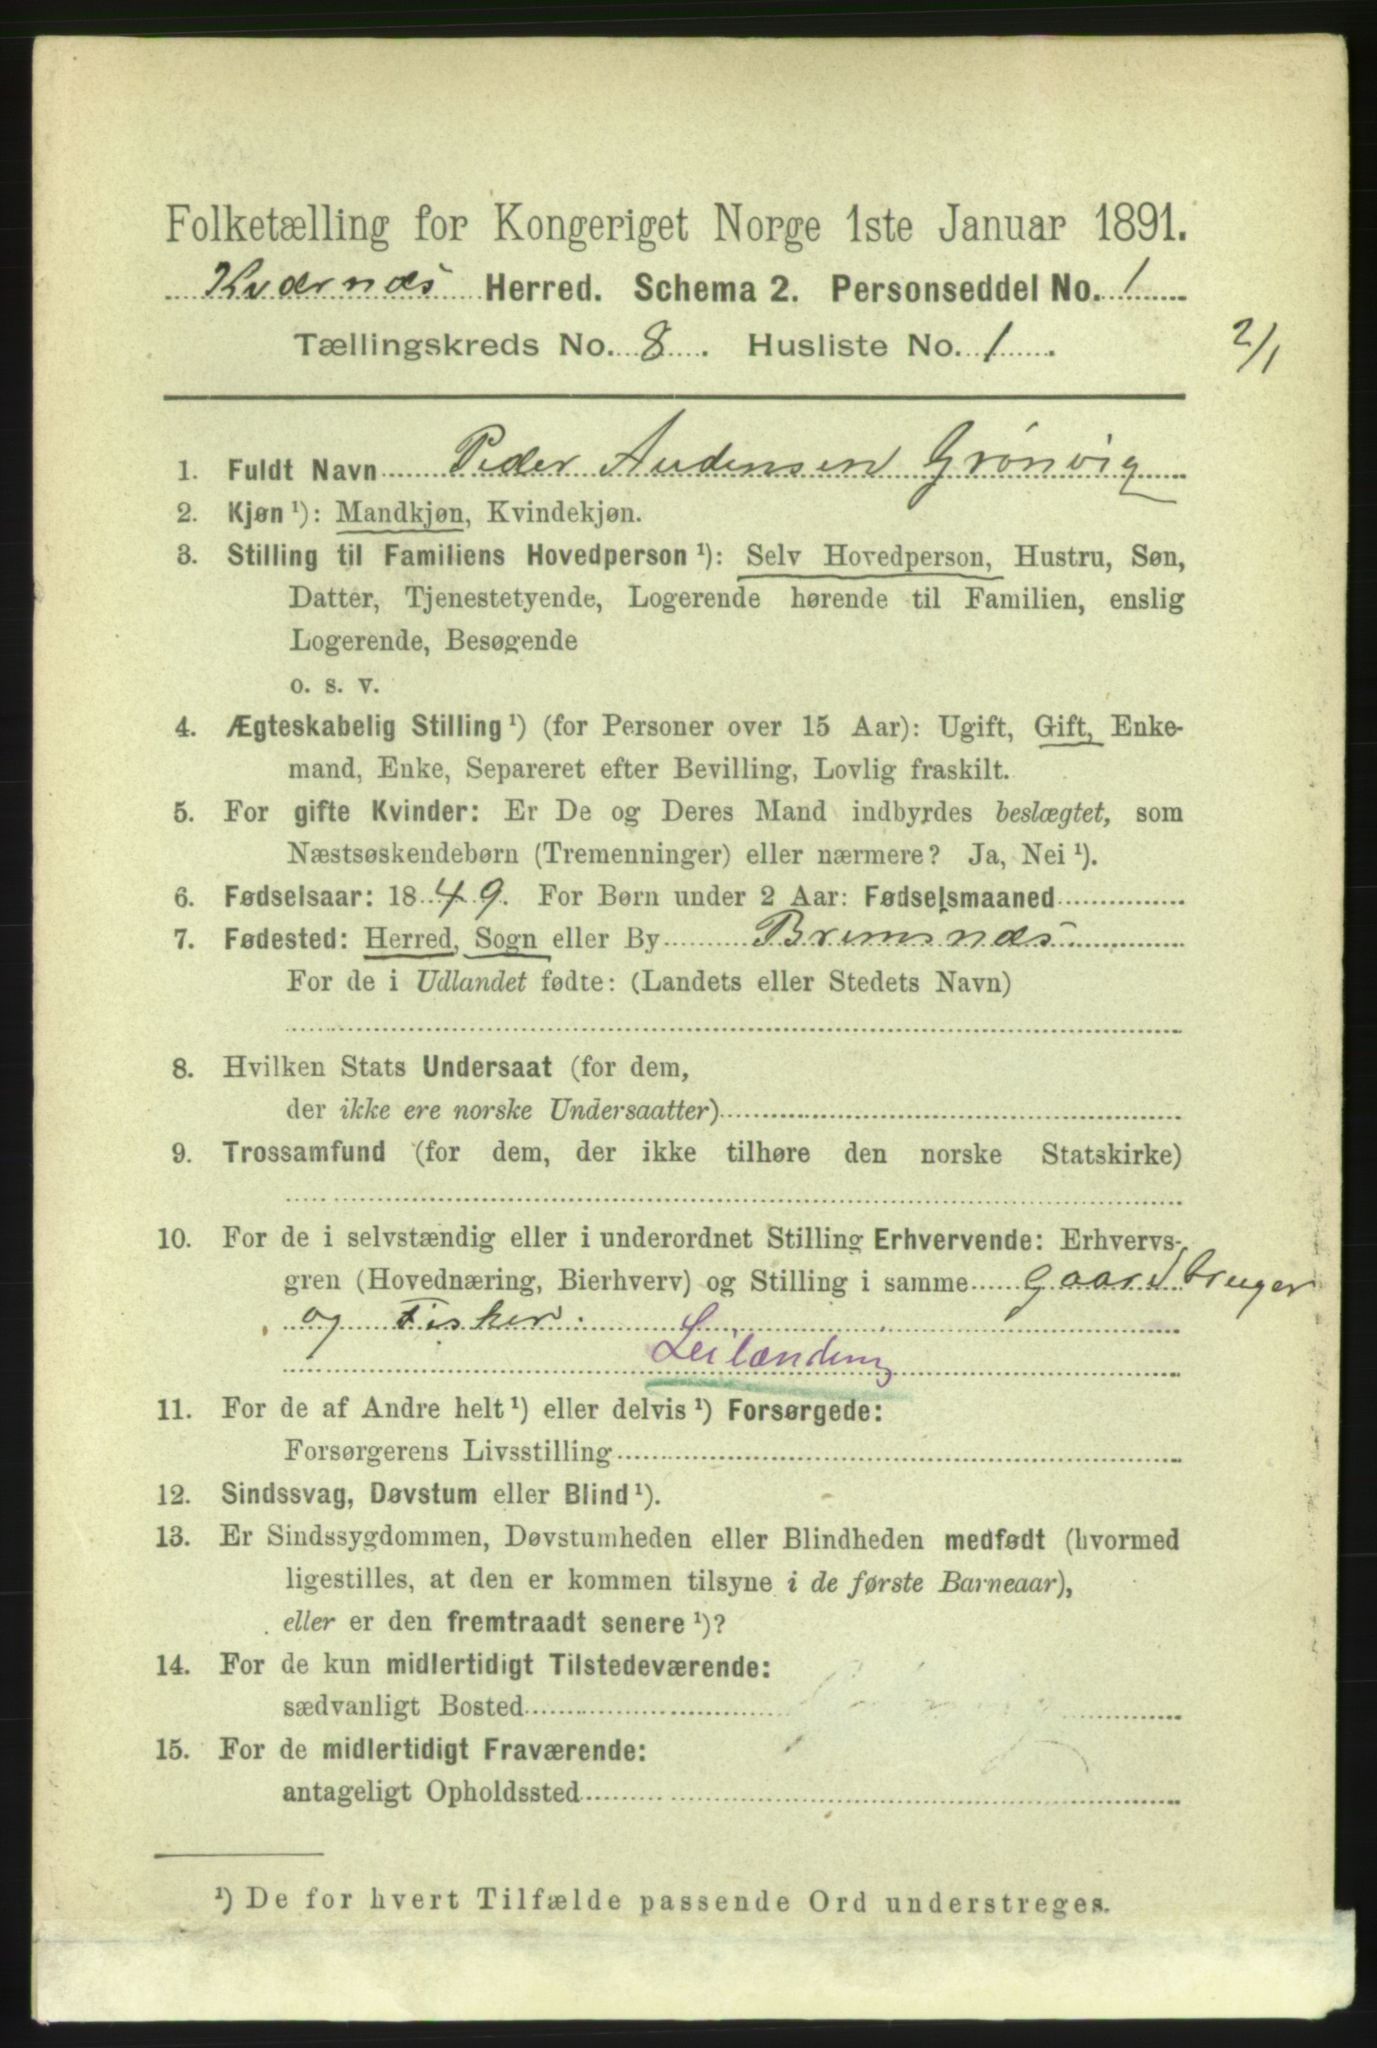 Folketælling for Kongeriget Norge 1ste Januar 1891.
Kvernæs Herred. Schema 2. Personseddel No. 1
Tællingskreds No. 8. Husliste No. 1.
2/1
1. Fuldt Navn Peder Andersen Grönvig
2. Kjøn ¹): Mandkjøn, Kvindekjøn.
3. Stilling til Familiens Hovedperson ¹): Selv Hovedperson, Hustru, Søn,
Datter, Tjenestetyende, Logerende hørende til Familien, enslig
Logerende, Besøgende
o. s. v.
4. Ægteskabelig Stilling ¹) (for Personer over 15 Aar): Ugift, Gift, Enke-
mand, Enke, Separeret efter Bevilling, Lovlig fraskilt.
5. For gifte Kvinder: Er De og Deres Mand indbyrdes beslægtet, som
Næstsøskendebørn (Tremenninger) eller nærmere? Ja, Nei ¹).
6. Fødselsaar: 1849. For Børn under 2 Aar: Fødselsmaaned
7. Fødested: Herred, Sogn eller By Bremsnæs
For de i Udlandet fødte: (Landets eller Stedets Navn)
8. Hvilken Stats Undersaat (for dem,
der ikke ere norske Undersaatter)
9. Trossamfund (for dem, der ikke tilhøre den norske Statskirke)
10. For de i selvstændig eller i underordnet Stilling Erhvervende: Erhvervs-
gren (Hovednæring, Bierhverv) og Stilling i samme Gaardbruger
og Fisker.
Leilænding
11. For de af Andre helt ¹) eller delvis ¹) Forsørgede:
Forsørgerens Livsstilling
12. Sindssvag, Døvstum eller Blind ¹).
13. Er Sindssygdommen, Døvstumheden eller Blindheden medfødt (hvormed
ligestilles, at den er kommen tilsyne i de første Barneaar),
eller er den fremtraadt senere ¹)?
14. For de kun midlertidigt Tilstedeværende:
sædvanligt Bosted
15. For de midlertidigt Fraværende:
antageligt Opholdssted
¹) De for hvert Tilfælde passende Ord understreges.